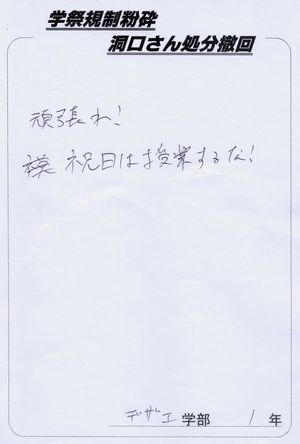 学祭規制粉砕
洞口さん処分撤回
頑張れ!
祝日は授業するな!
デザエ 学部 1 年